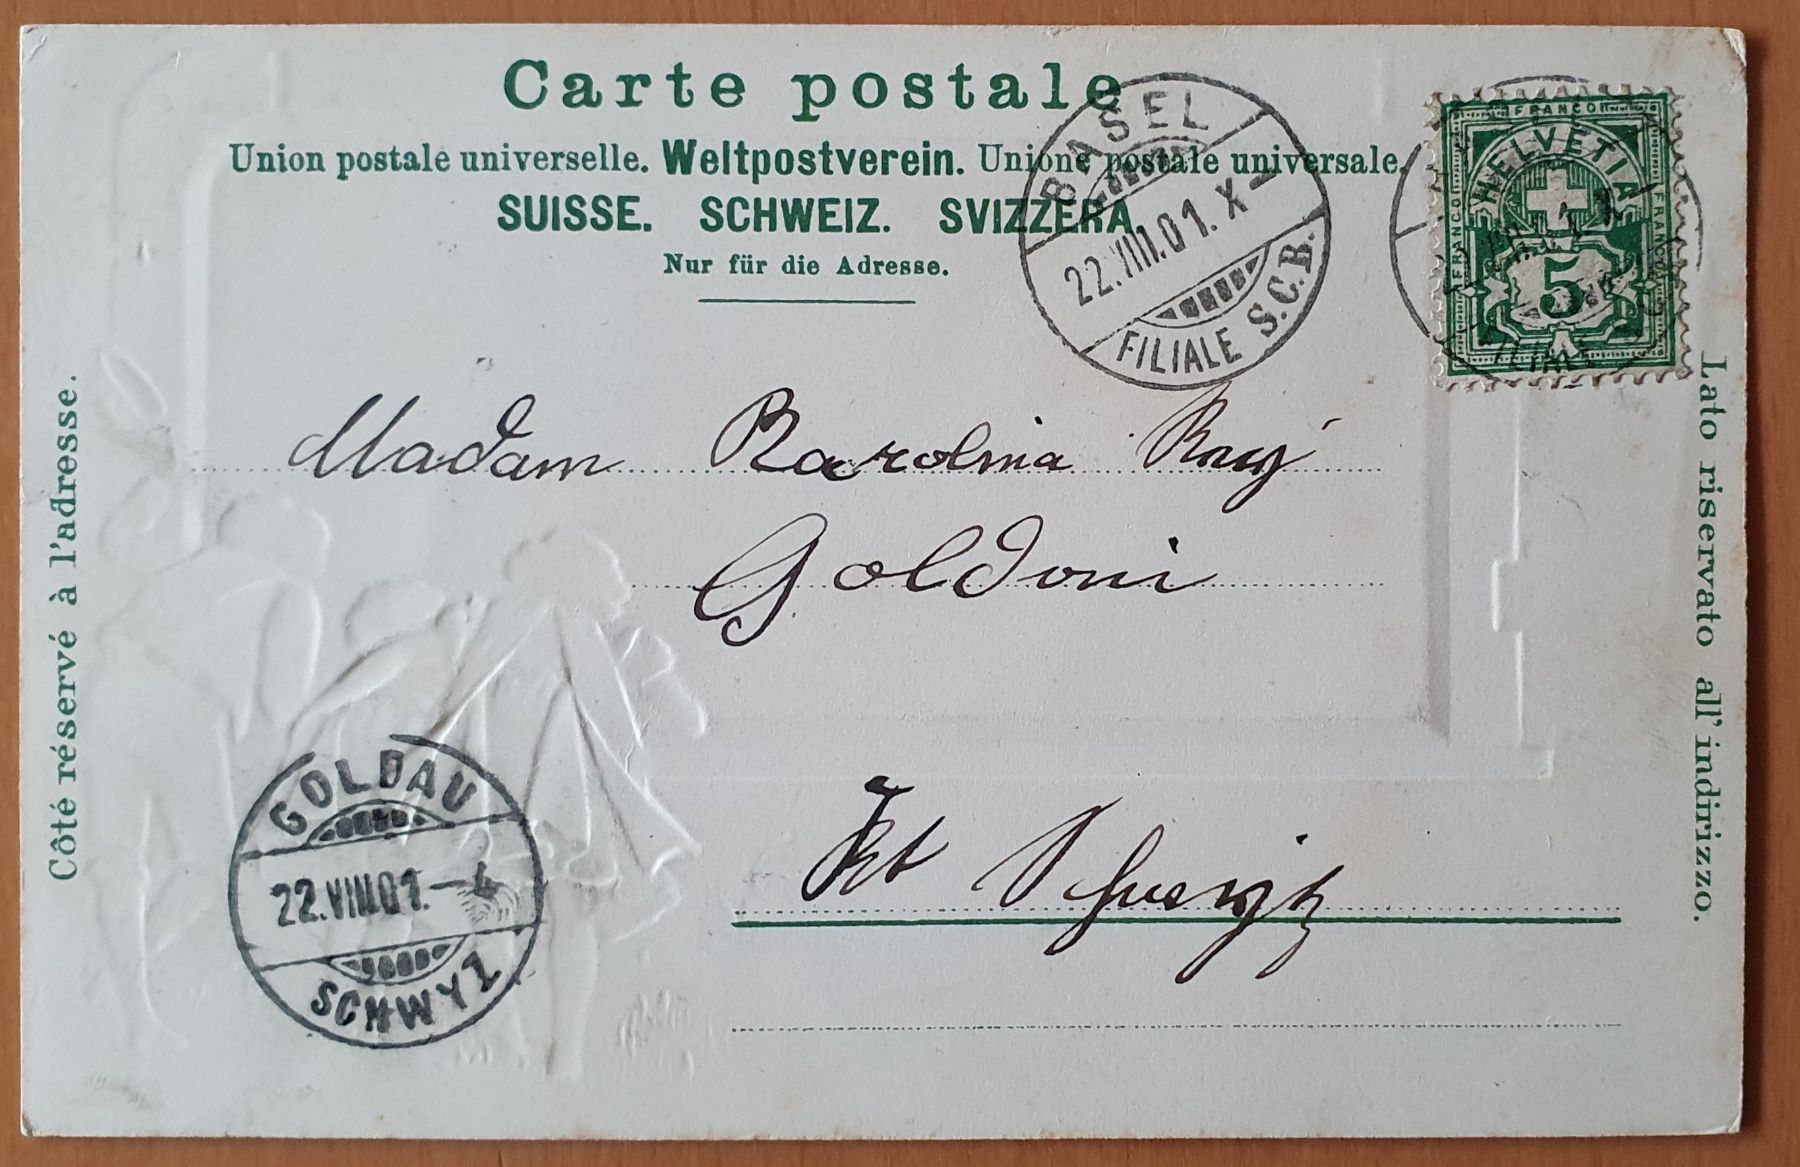 Carte postale
Union postale universelle. Weltpostverein. Unione postale universale.
SUISSE. SCHWEIZ. SVIZZERA.
Nur für die Adresse.
BASEL
22.VIII.01. X –
FILIALE S.C.B.
FRANCO
HELVETIA
FRANCO
FRANCO
5
FILIALE
Côté réservé à l'adresse.
Lato riservato all' indirizzo.
Madam Karolina
Goldoni
Kt Schweiz
GOLDAU
22.VIII.01. – 4
SCHWYZ